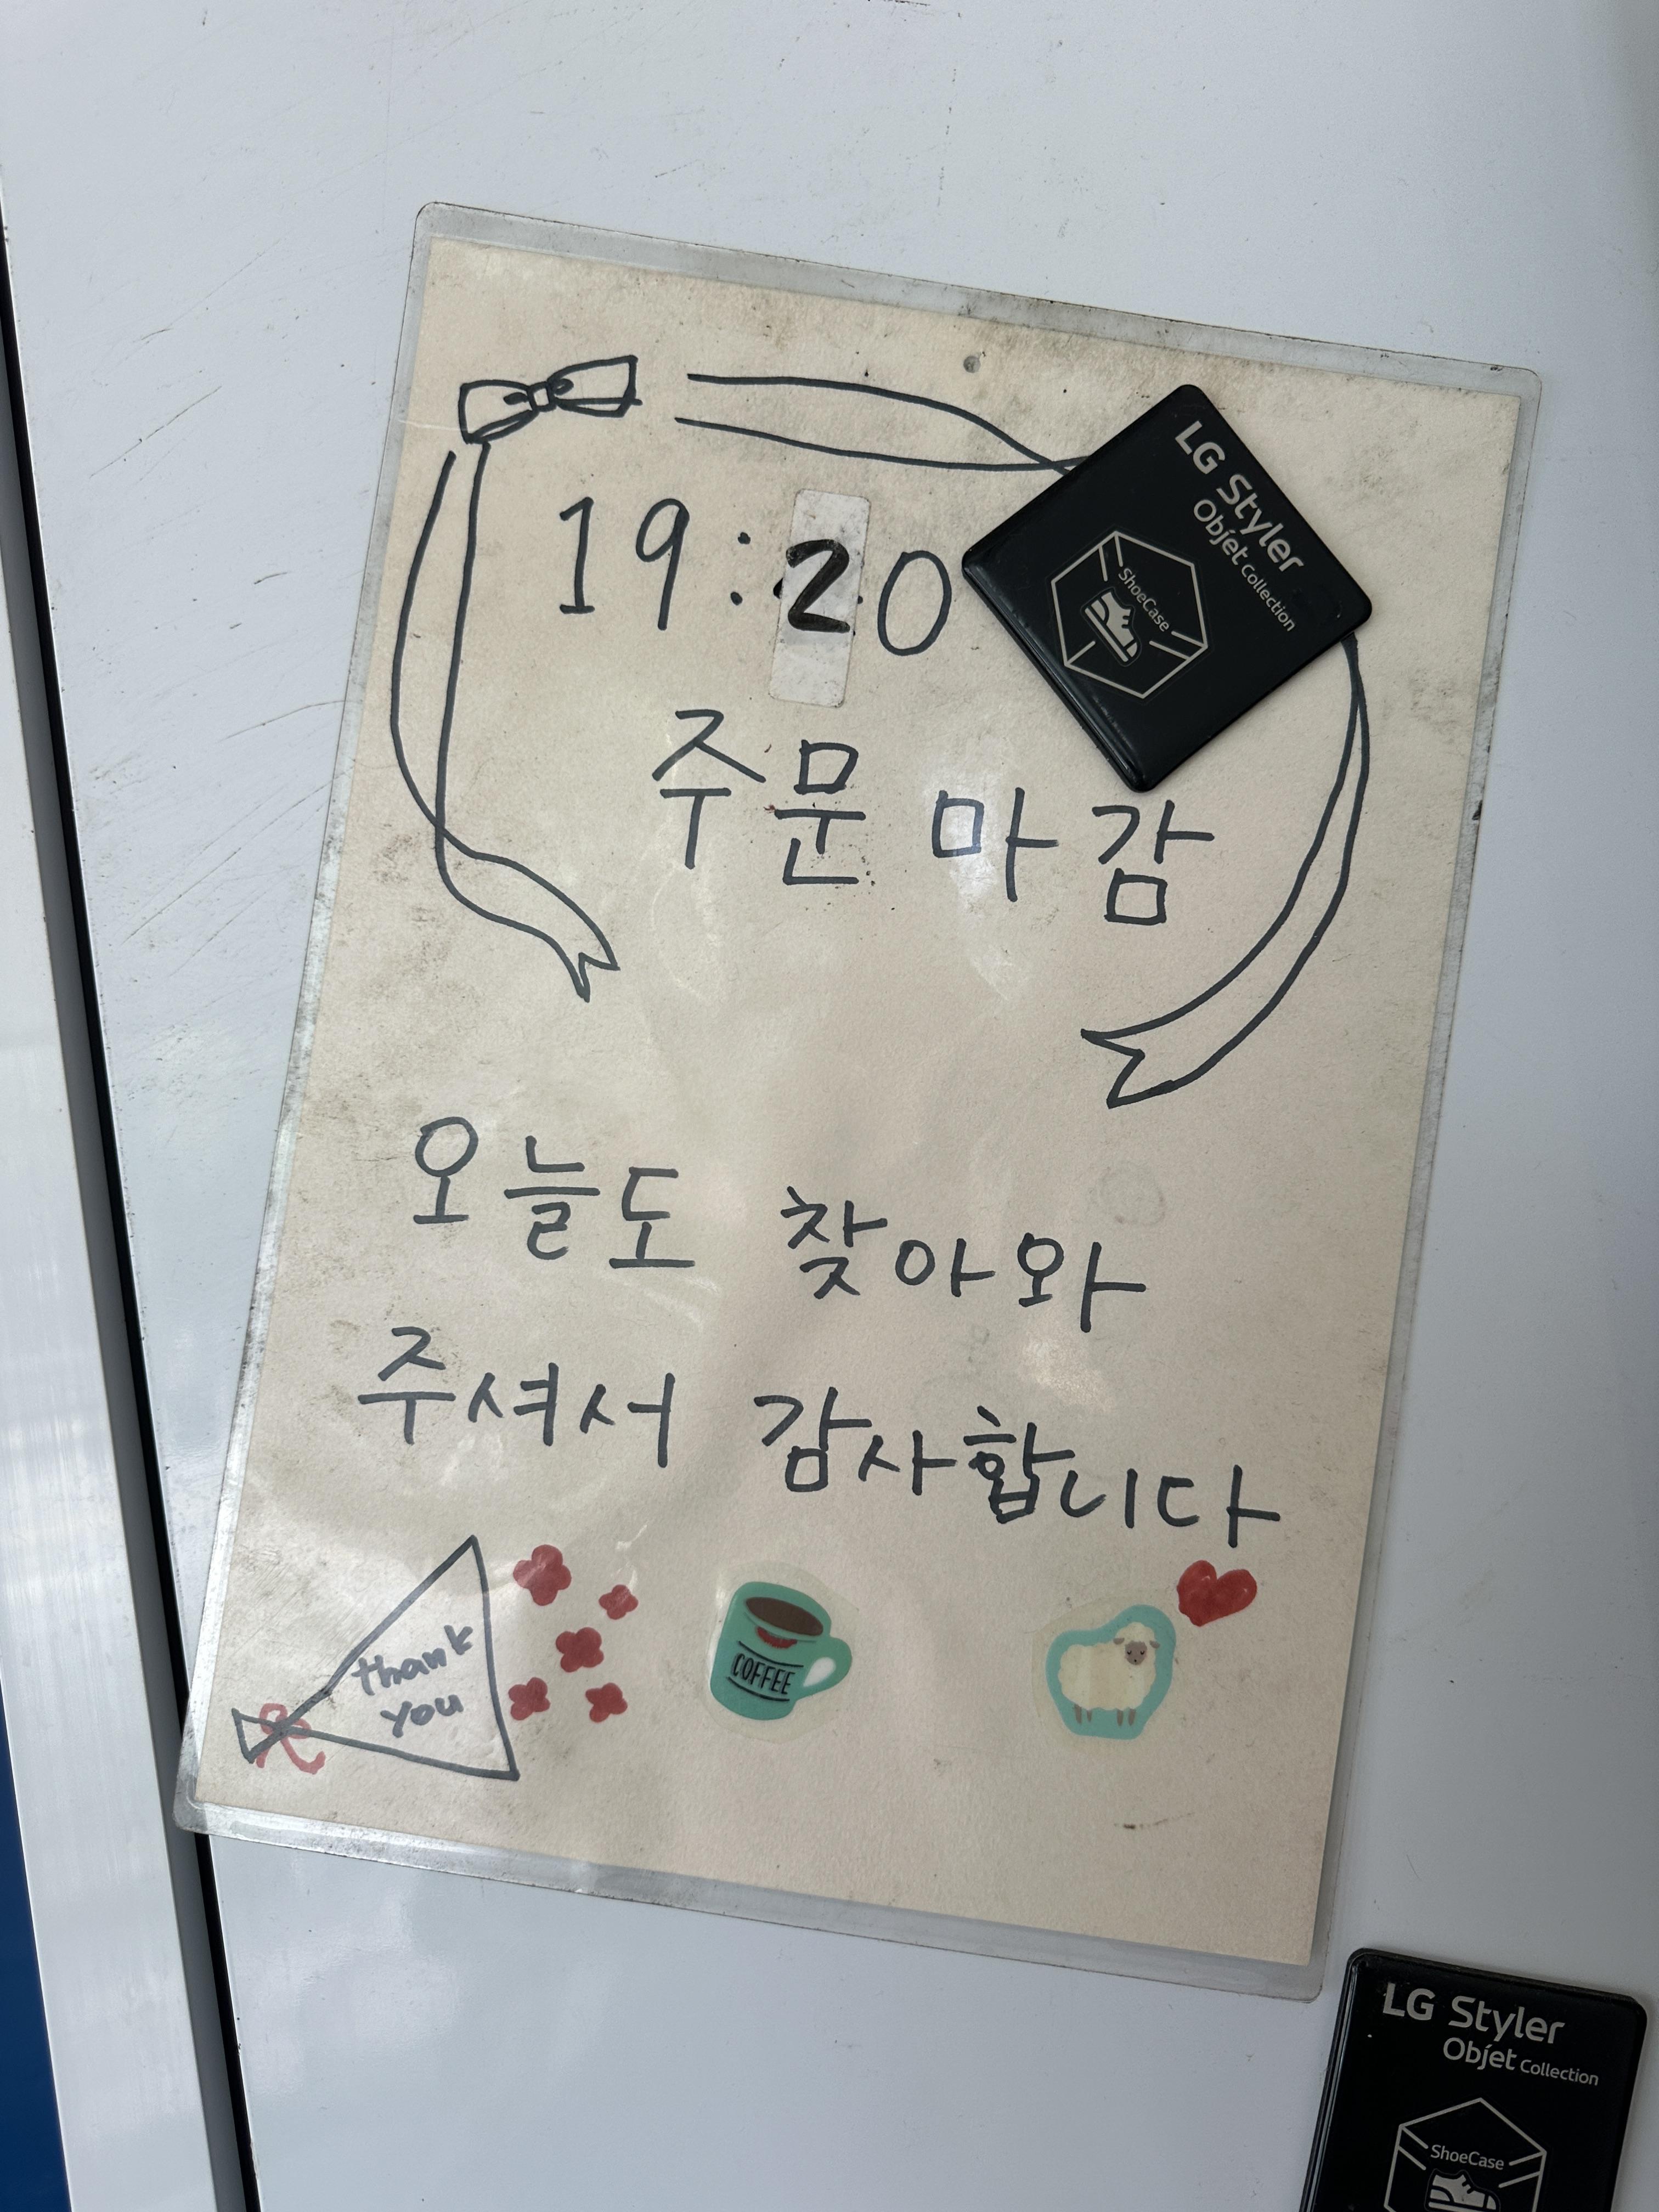 19:20
주문 마감
오늘도 찾아와
주셔서 감사합니다
thank
you
COFFEE
LG Styler
Objet Collection
ShoeCase
LG Styler
Objet Collection
ShoeCase